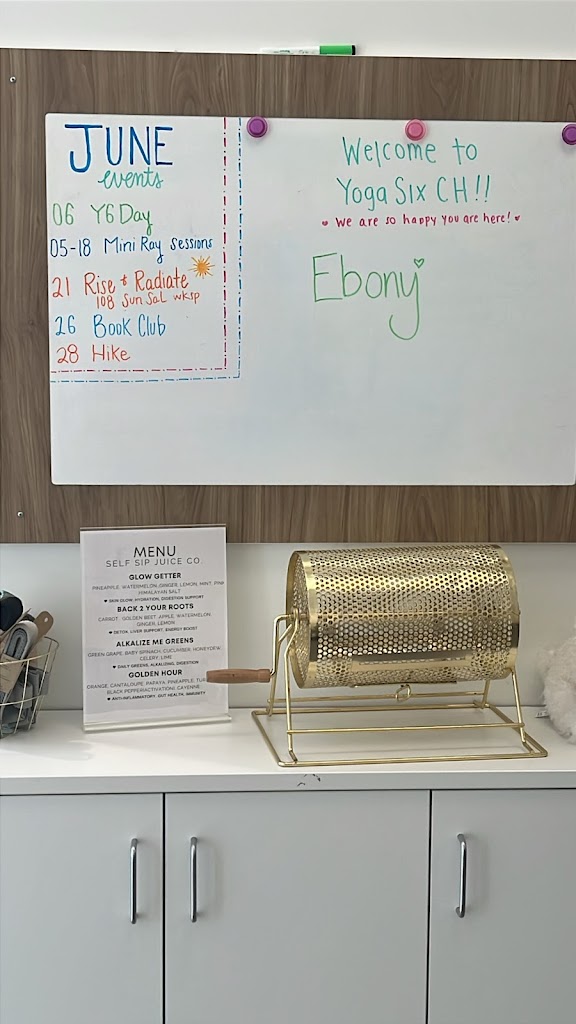 JUNE
events
06 Y6 Day
05-18 Mini Ray Sessions
21 Rise & Radiate
108 Sun Sal wksp
26 Book Club
28 Hike
Welcome to
Yoga Six CH!!
♥ We are so happy you are here! ♥
Ebony
MENU
SELF SIP JUICE CO.
GLOW GETTER
PINEAPPLE, WATERMELON, GINGER, LEMON, MINT, PINK
HIMALAYAN SALT
♥ SKIN GLOW, HYDRATION, DIGESTION SUPPORT
BACK 2 YOUR ROOTS
CARROT, GOLDEN BEET, APPLE, WATERMELON,
GINGER, LEMON
♥ DETOX, LIVER SUPPORT, ENERGY BOOST
ALKALIZE ME GREENS
GREEN GRAPE, BABY SPINACH, CUCUMBER, HONEYDEW,
CELERY, LIME
♥ DAILY GREENS, ALKALIZING, DIGESTION
GOLDEN HOUR
ORANGE, CANTALOUPE, PAPAYA, PINEAPPLE,
BLACK PEPPER(ACTIVATION), CAYENNE
♥ ANTI-INFLAMMATORY, GUT HEALTH, IMMUNITY